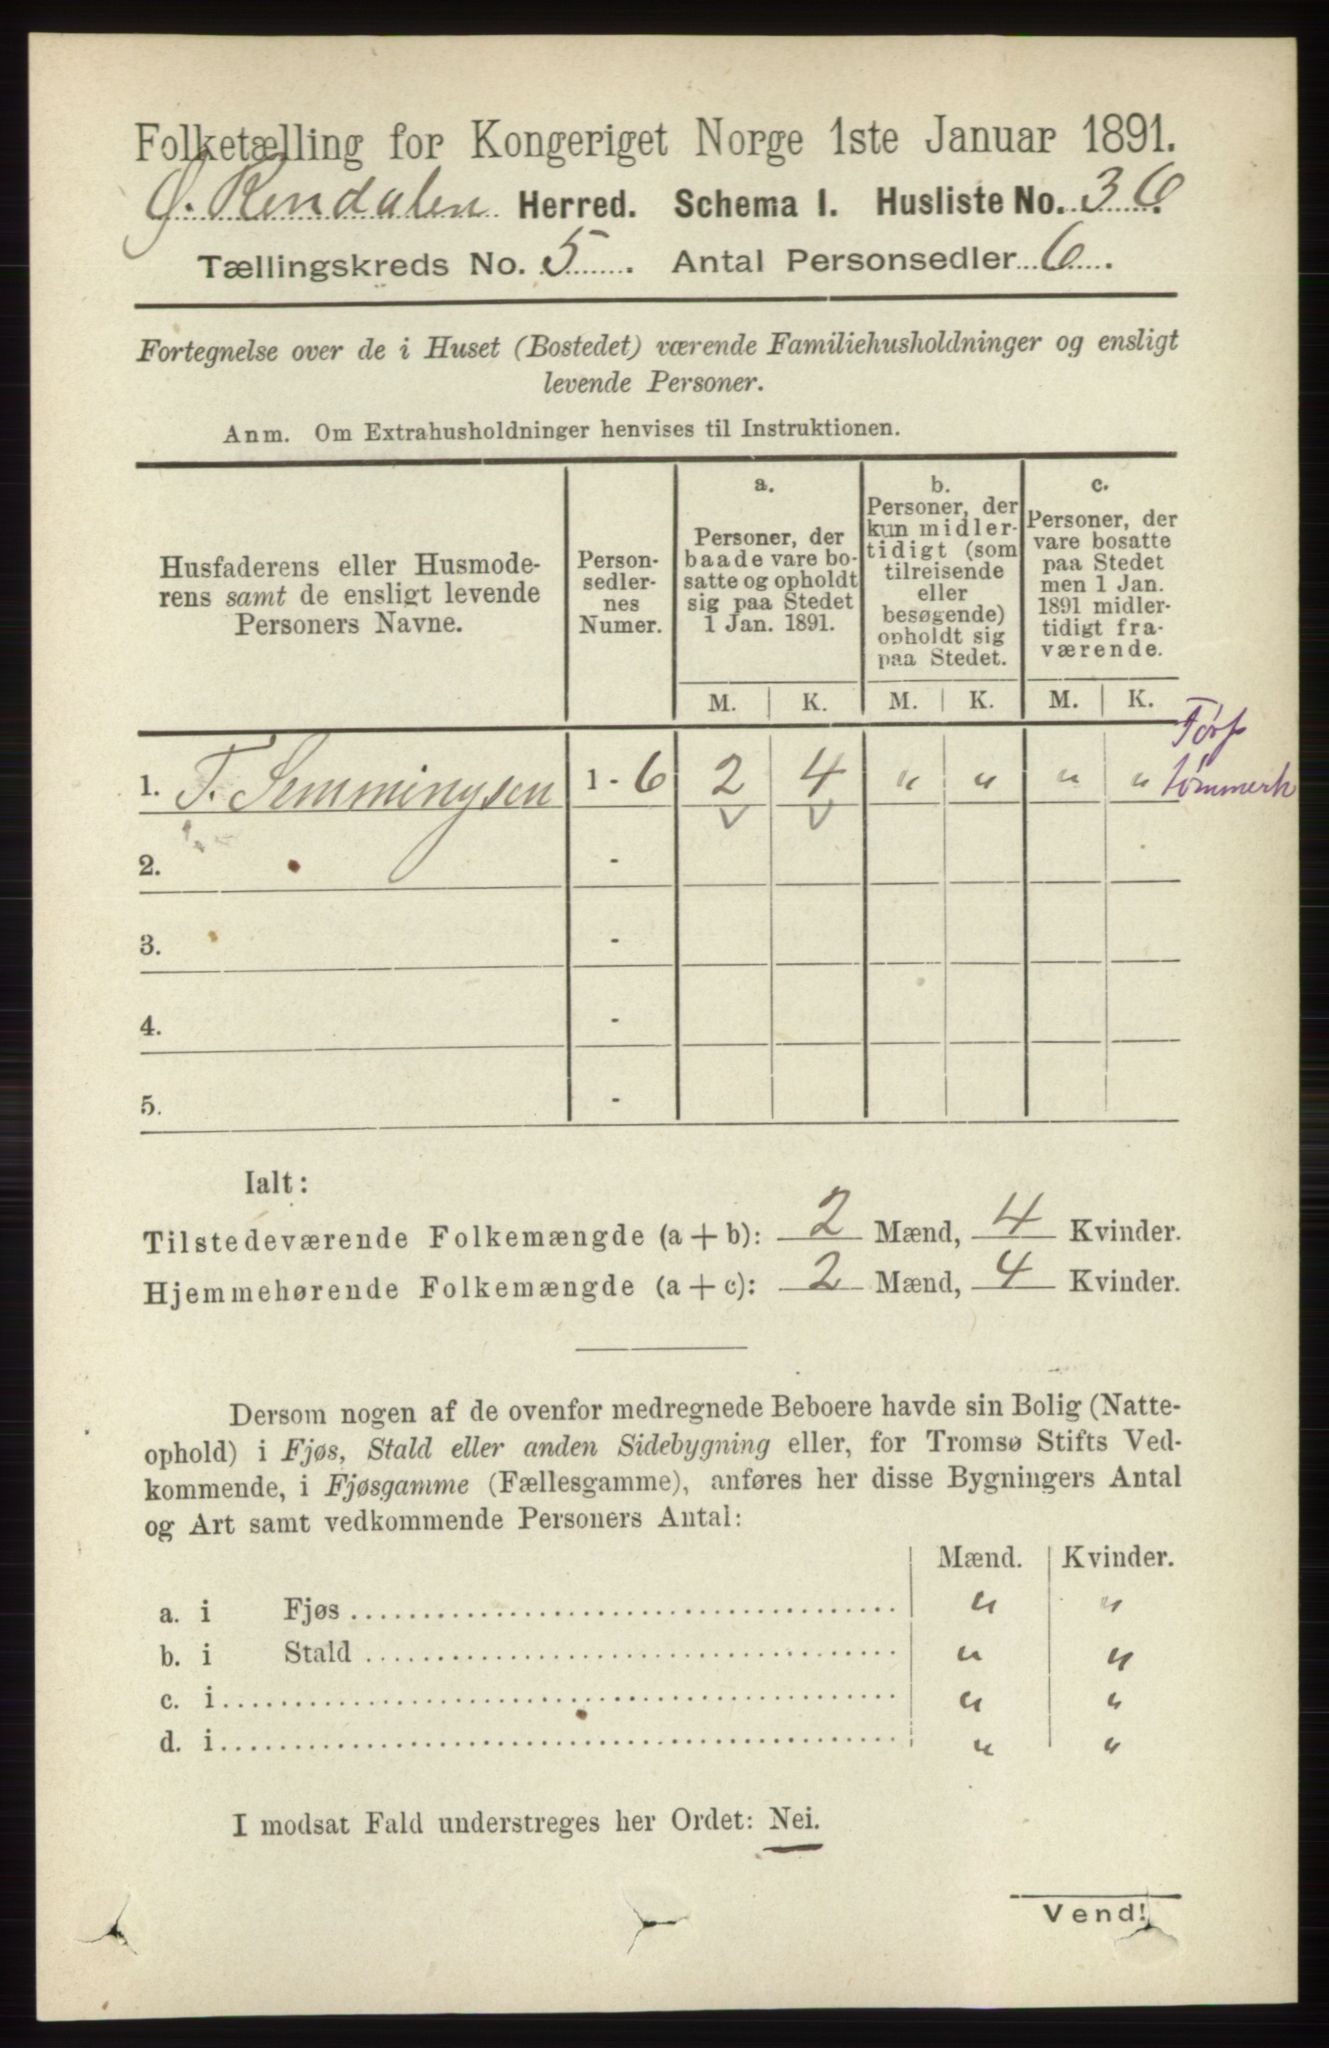 Folketælling for Kongeriget Norge 1ste Januar 1891.
Ø. Rendalen Herred. Schema I. Husliste No. 36.
Tællingskreds No. 5. Antal Personsedler 6.
Fortegnelse over de i Huset (Bostedet) værende Familiehusholdninger og ensligt
levende Personer.
Anm. Om Extrahusholdninger henvises til Instruktionen.
Husfaderens eller Husmode-
rens samt de ensligt levende
Personers Navne.
Person-
sedler-
nes
Numer.
a.
Personer, der
baade vare bo-
satte og opholdt
sig paa Stedet
1 Jan. 1891.
b.
Personer, der
kun midler-
tidigt (som
tilreisende
eller
besøgende)
opholdt sig
paa Stedet.
c.
Personer, der
vare bosatte
paa Stedet
men 1 Jan.
1891 midler-
tidigt fra-
værende.
M. K. M. K. M. K.
1. T. Semmingsen 1 - 6 2 4 " " " "
Torp
tømmerh
2. -
3. -
4. -
5. -
Ialt:
Tilstedeværende Folkemængde (a + b): 2 Mænd, 4 Kvinder.
Hjemmehørende Folkemængde (a + c): 2 Mænd, 4 Kvinder.
Dersom nogen af de ovenfor medregnede Beboere havde sin Bolig (Natte-
ophold) i Fjøs, Stald eller anden Sidebygning eller, for Tromsø Stifts Ved-
kommende, i Fjøsgamme (Fællesgamme), anføres her disse Bygningers Antal
og Art samt vedkommende Personers Antal:
Mænd. Kvinder.
a. i Fjøs " "
b. i Stald " "
c. i " "
d. i " "
I modsat Fald understreges her Ordet: Nei.
Vend!